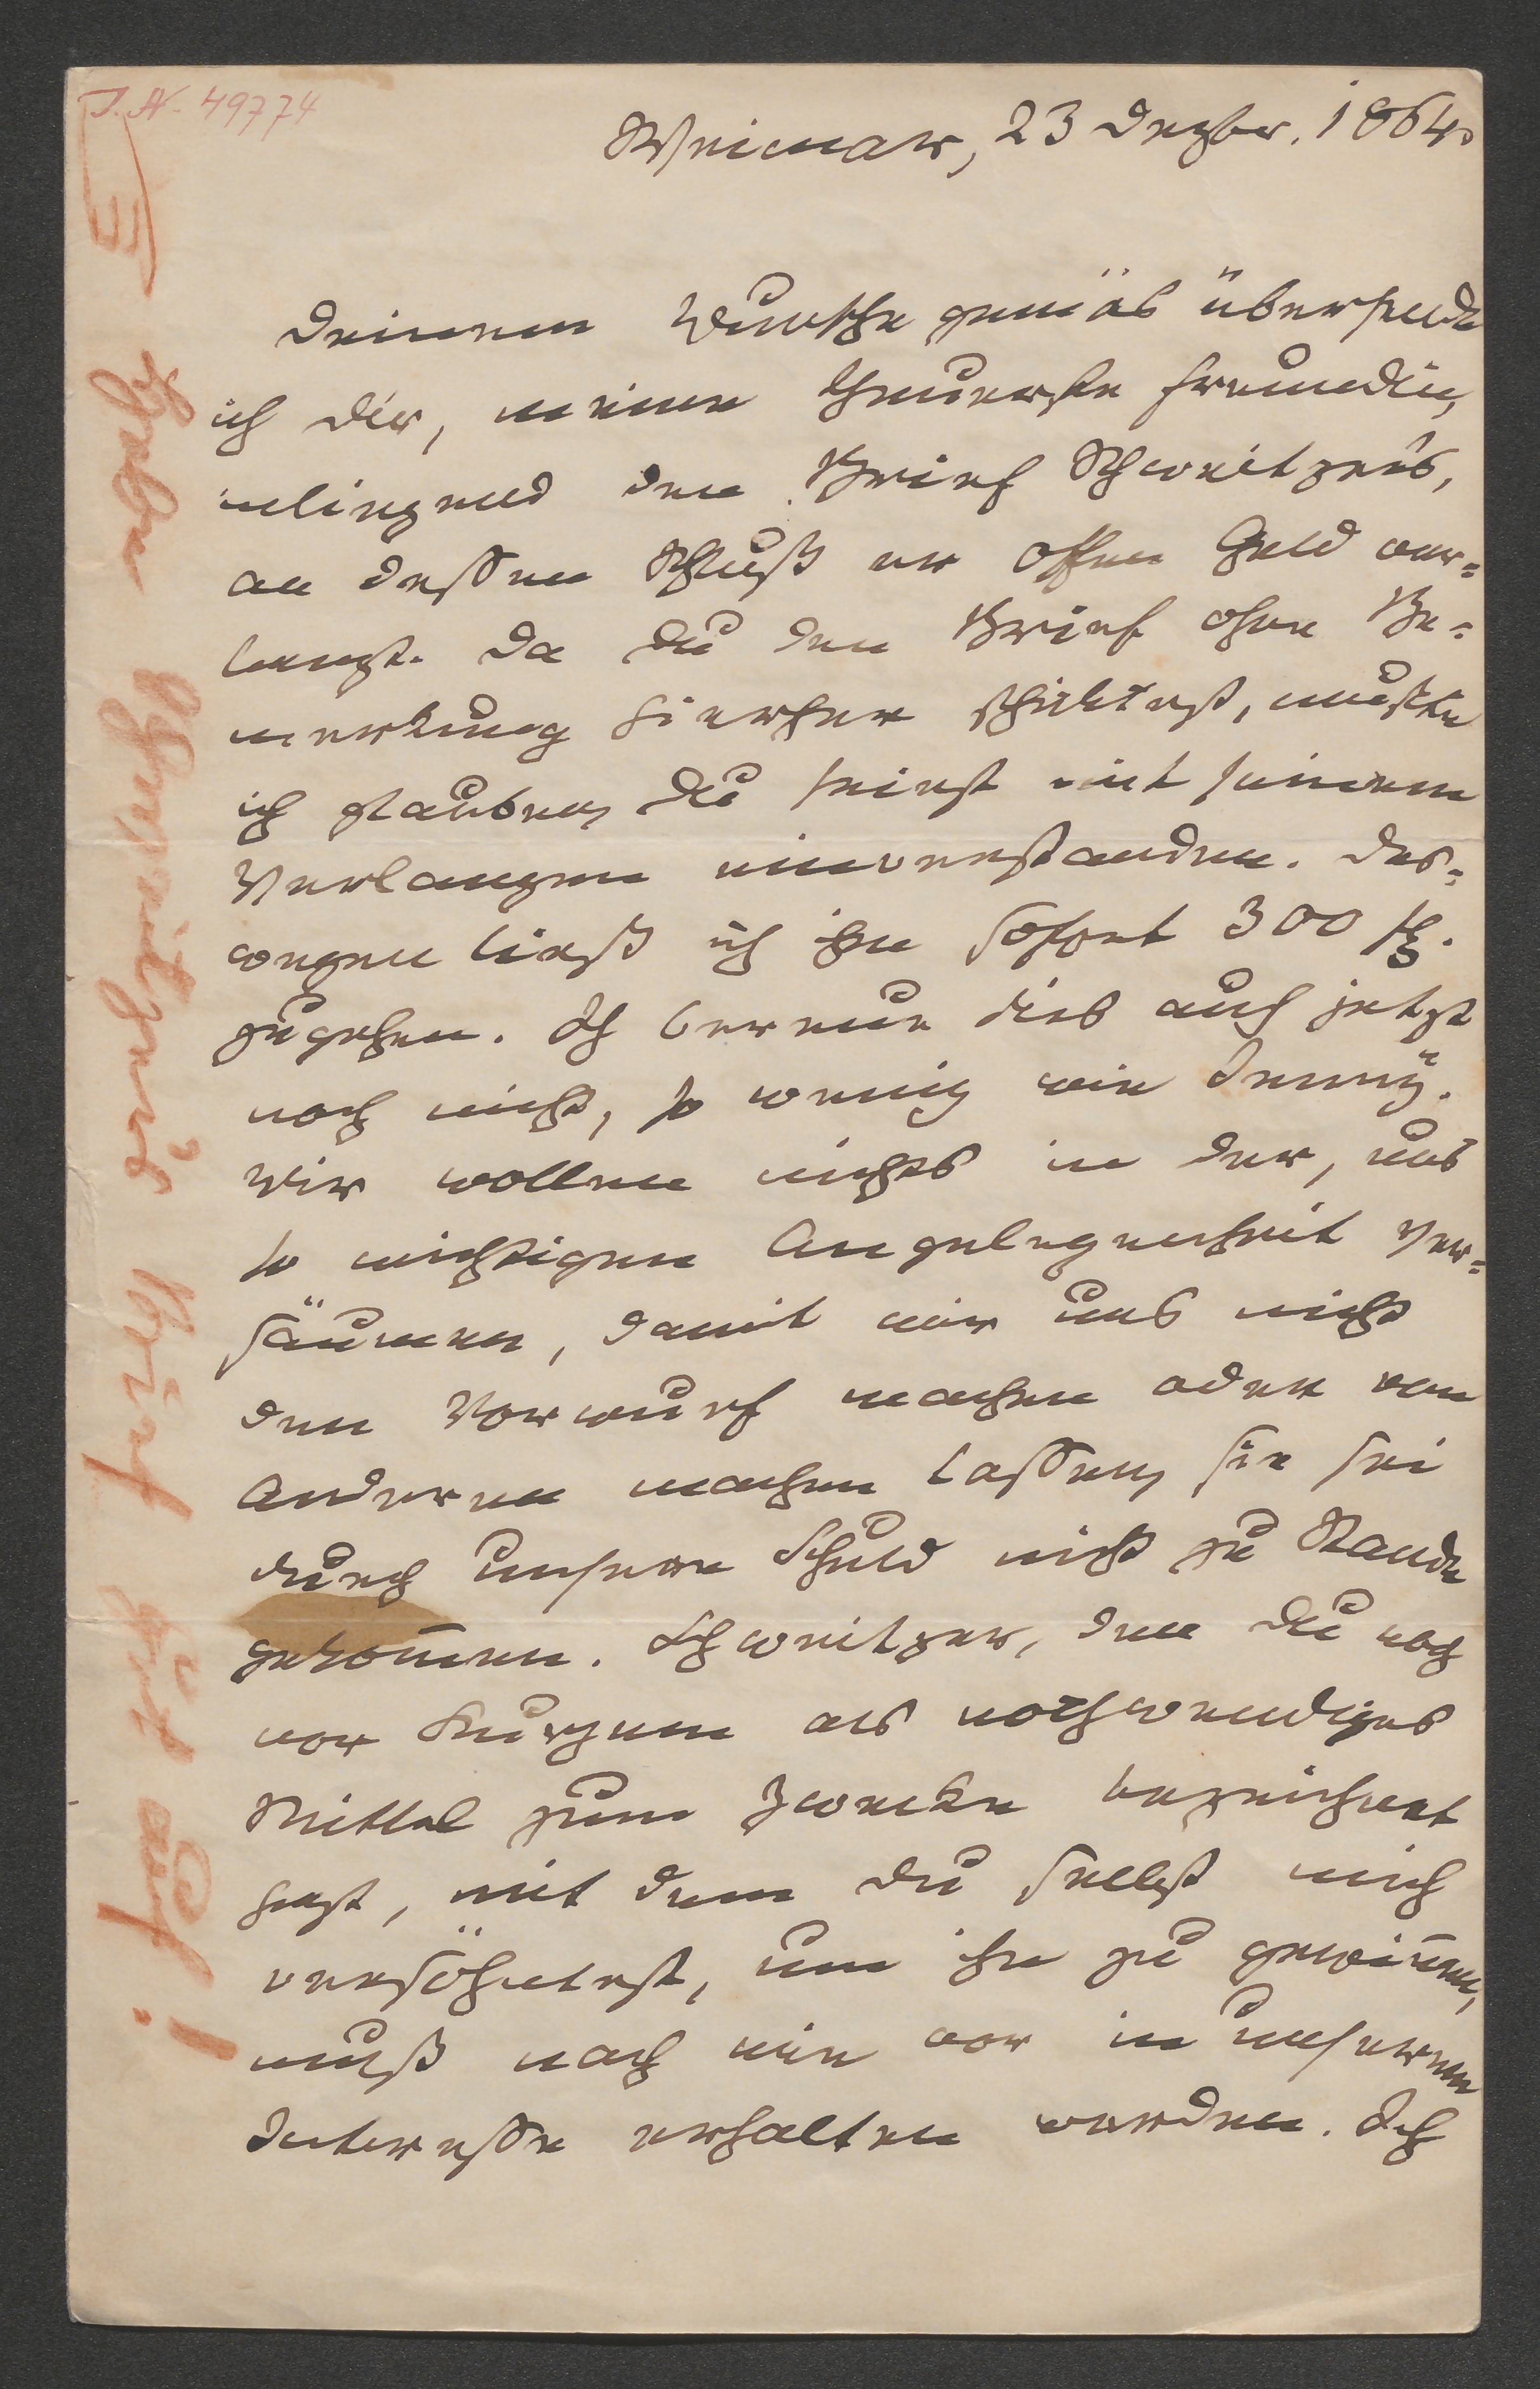 I. N. 49774
Weimar, 23 Dezbr. 1864.
Deinem Wunsche gemäs übersende
ich dir, meine theuerste Freundin,
inliegend den Brief Schweitzers,
an dessen Schluß er offen Geld ver=
langt. Da Du den Brief ohne Be=
merkung hierher schiktest, mußte
ich glauben, Du seiest mit seinem
Verlangen einverstanden. Des=
wegen ließ ich ihm sofort 300
zugehen. Ich bereue dies auch jetzt
noch nicht, so wenig wie
Wir wollen nichts in der, uns
so wichtigen Angelegenheit ver=
säumen, damit wir uns nicht
den Vorwurf machen oder von
Anderen machen lassen, sie sei
durch unsere Schuld nicht zu Stande
gekom̄en. Schweitzer, den Du noch
vor Kurzem als nothwendiges
Mittel zum Zwecke bezeichnet
hast, mit dem Du selbst mich
versöhntest, um ihn zu gewin̄en,
muß nach wie vor in unserem
Interesse erhalten werden. Ich